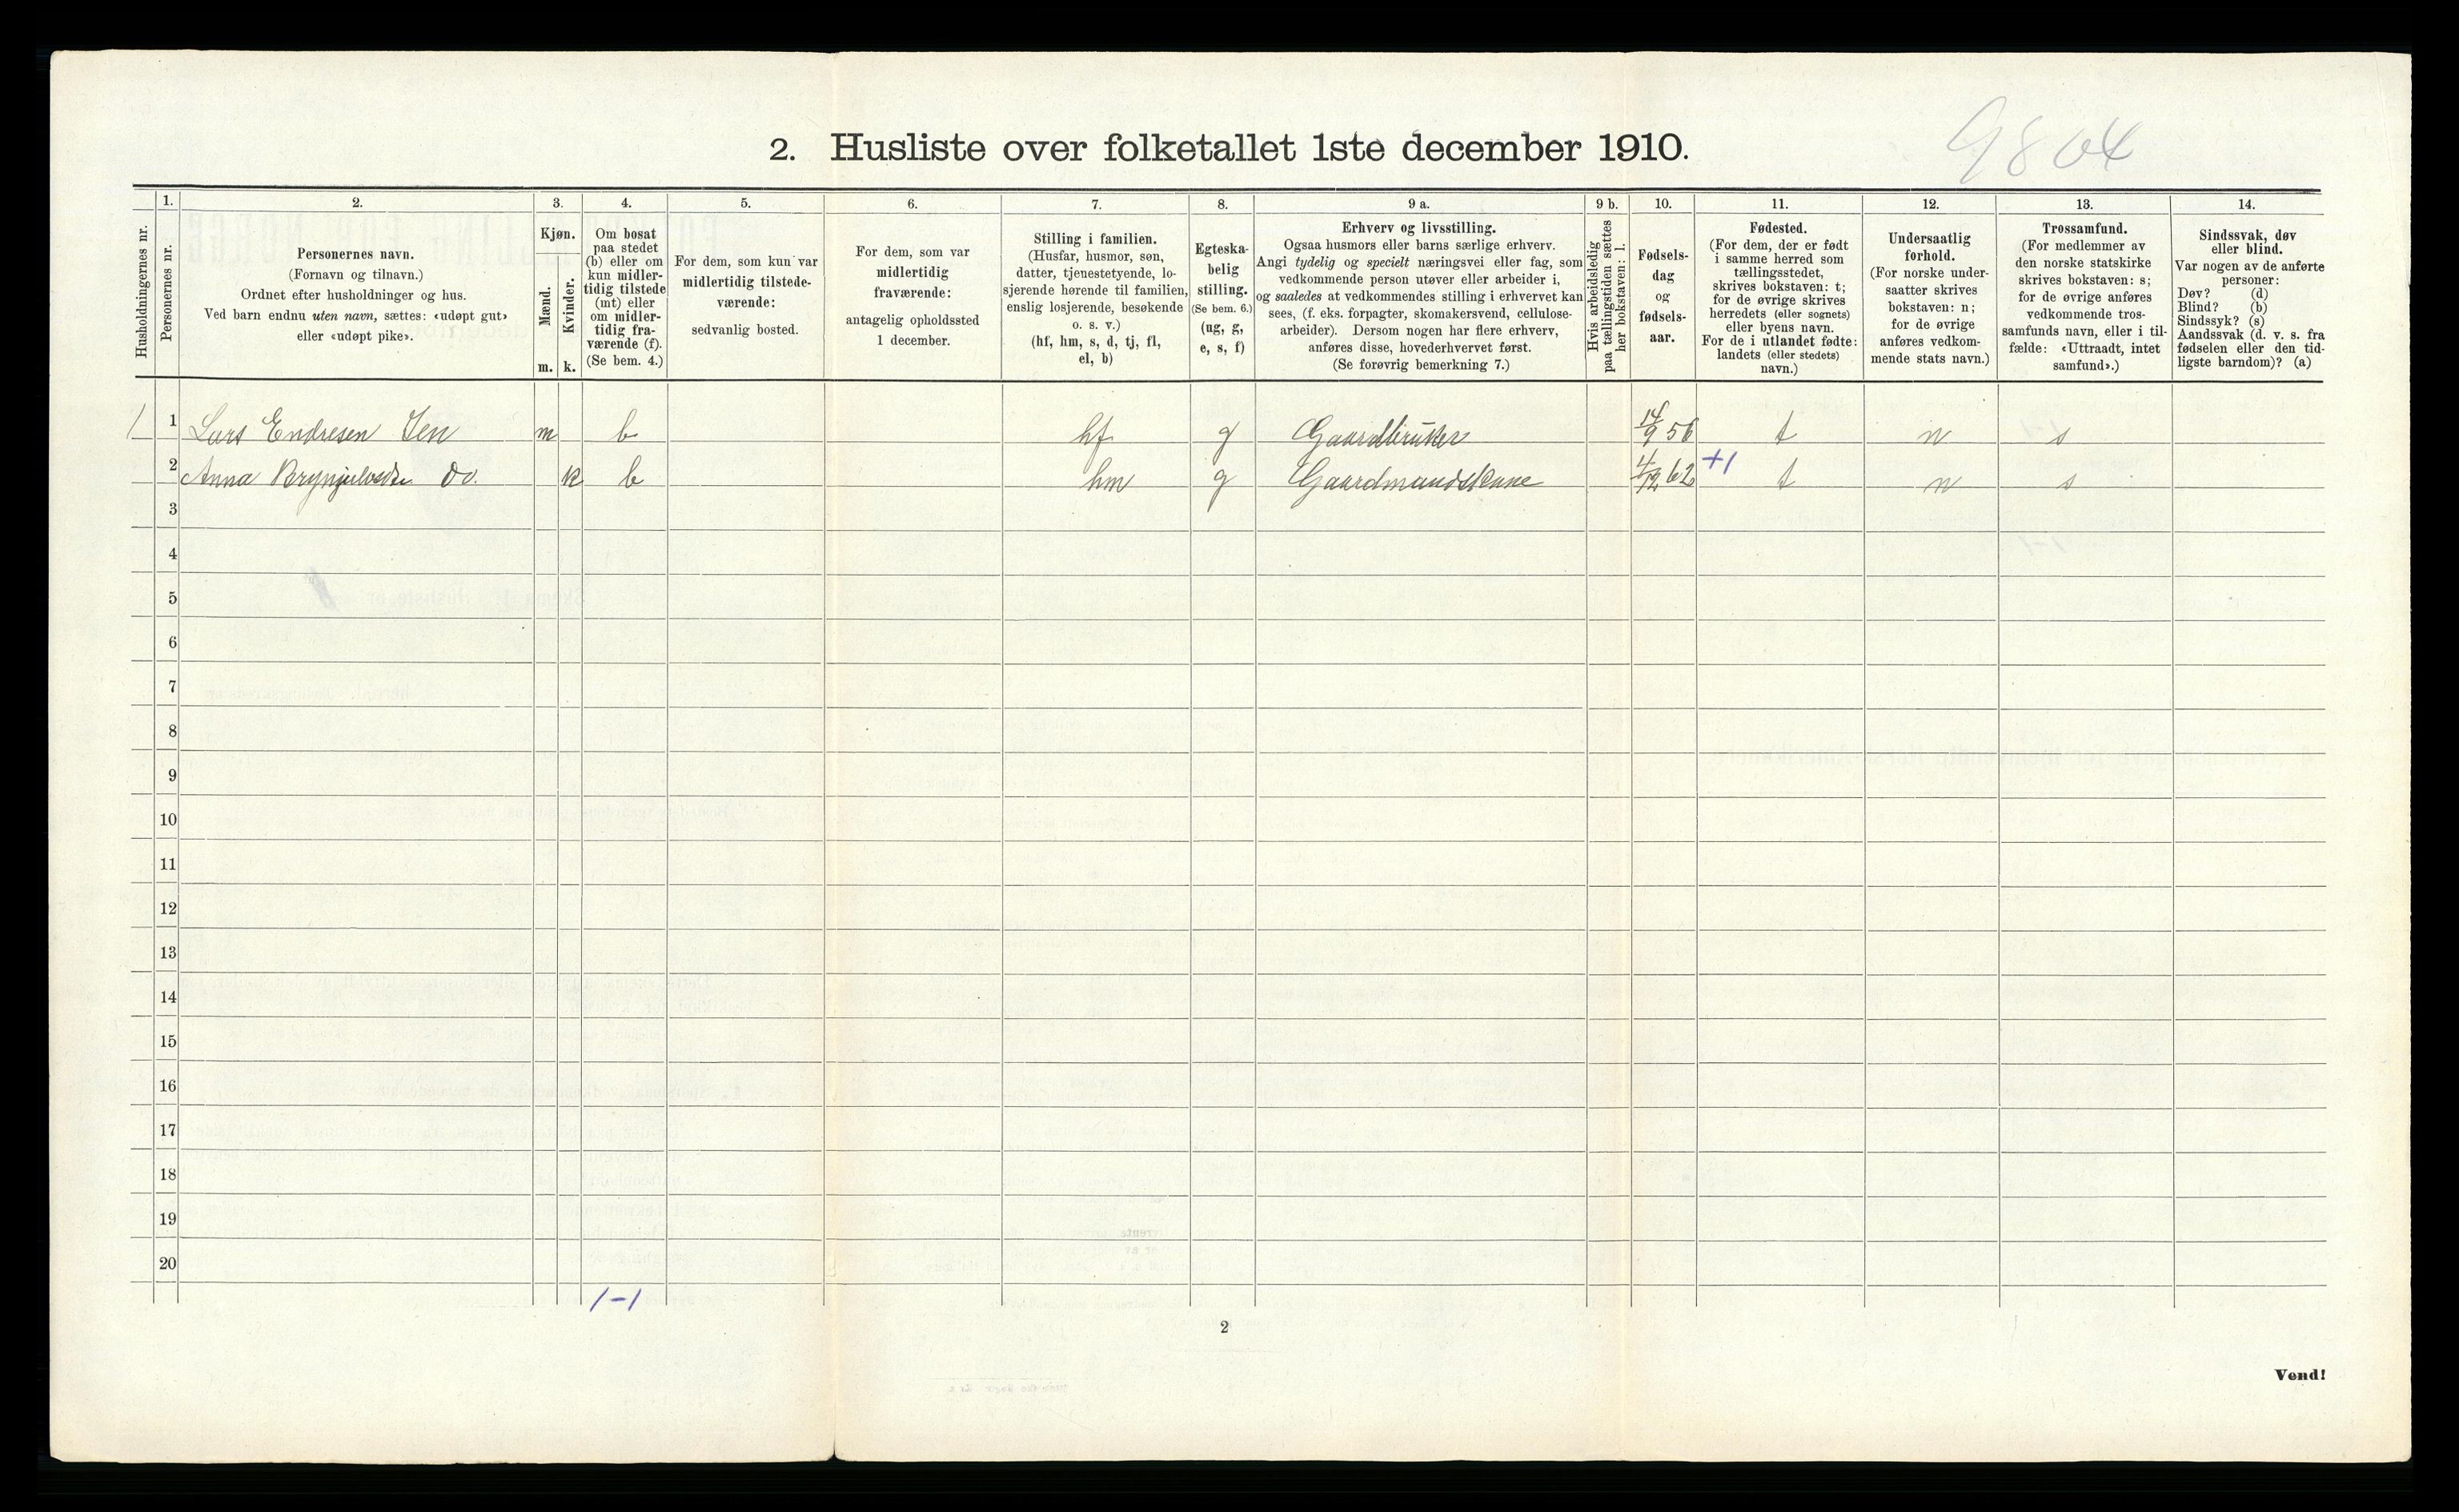 9804
2. Husliste over folketallet 1ste december 1910.
Husholdningernes nr.
1.
Personernes nr.
2.
Personernes navn.
(Fornavn og tilnavn.)
Ordnet efter husholdninger og hus.
Ved barn endnu uten navn, sættes: «udøpt gut»
eller «udøpt pike».
3.
Kjøn.
Mænd.
Kvinder.
m. k.
4.
Om bosat
paa stedet
(b) eller om
kun midler-
tidig tilstede
(mt) eller
om midler-
tidig fra-
værende (f).
(Se bem. 4.)
5.
For dem, som kun var
midlertidig tilstede-
værende:
sedvanlig bosted.
6.
For dem, som var
midlertidig
fraværende:
antagelig opholdssted
1 december.
7.
Stilling i familien.
(Husfar, husmor, søn,
datter, tjenestetyende, lo-
sjerende hørende til familien,
enslig losjerende, besøkende
o. s. v.)
(hf, hm, s, d, tj, fl,
el, b)
8.
Egteska-
belig
stilling.
(Se bem. 6.)
(ug, g,
e, s, f)
9 a.
Erhverv og livsstilling.
Ogsaa husmors eller barns særlige erhverv.
Angi tydelig og specielt næringsvei eller fag, som
vedkommende person utøver eller arbeider i,
og saaledes at vedkommendes stilling i erhvervet kan
sees, (f. eks. forpagter, skomakersvend, cellulose-
arbeider). Dersom nogen har flere erhverv,
anføres disse, hovederhvervet først.
(Se forøvrig bemerkning 7.)
9 b.
Hvis arbeidsledig
paa tællingstiden sættes
her bokstaven: l.
10.
Fødsels-
dag
og
fødsels-
aar.
11.
Fødested.
(For dem, der er født
i samme herred som
tællingsstedet,
skrives bokstaven: t;
for de øvrige skrives
herredets (eller sognets)
eller byens navn.
For de i utlandet fødte:
landets (eller stedets)
navn.)
12.
Undersaatlig
forhold.
(For norske under-
saatter skrives
bokstaven: n;
for de øvrige
anføres vedkom-
mende stats navn.)
13.
Trossamfund.
(For medlemmer av
den norske statskirke
skrives bokstaven: s;
for de øvrige anføres
vedkommende tros-
samfunds navn, eller i til-
fælde: «Uttraadt, intet
samfund».)
14.
Sindssvak, døv
eller blind.
Var nogen av de anførte
personer:
Døv? (d)
Blind? (b)
Sindssyk? (s)
Aandssvak (d. v. s. fra
fødselen eller den tid-
ligste barndom)? (a)
1 1 Lars Endresen m b hf g Gaardbruker 14/9 56 t n s
2 Anna Brynjulvsdtr. Do. k b hm g Gaardmandskone 4/12 62 +1 t n s
3
4
5
6
7
8
9
10
11
12
13
14
15
16
17
18
19
20
1-1
2
Vend!